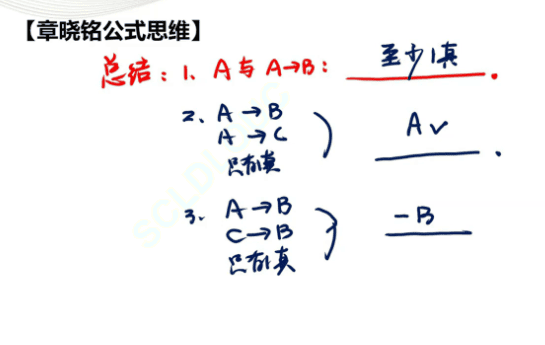 【章晓铭公式思维】
总结：1、A 与 A→B：至少1真．
2、A→B
A→C
只有1真
A✓．
3、A→B
C→B
只有1真
－B
SCLDL